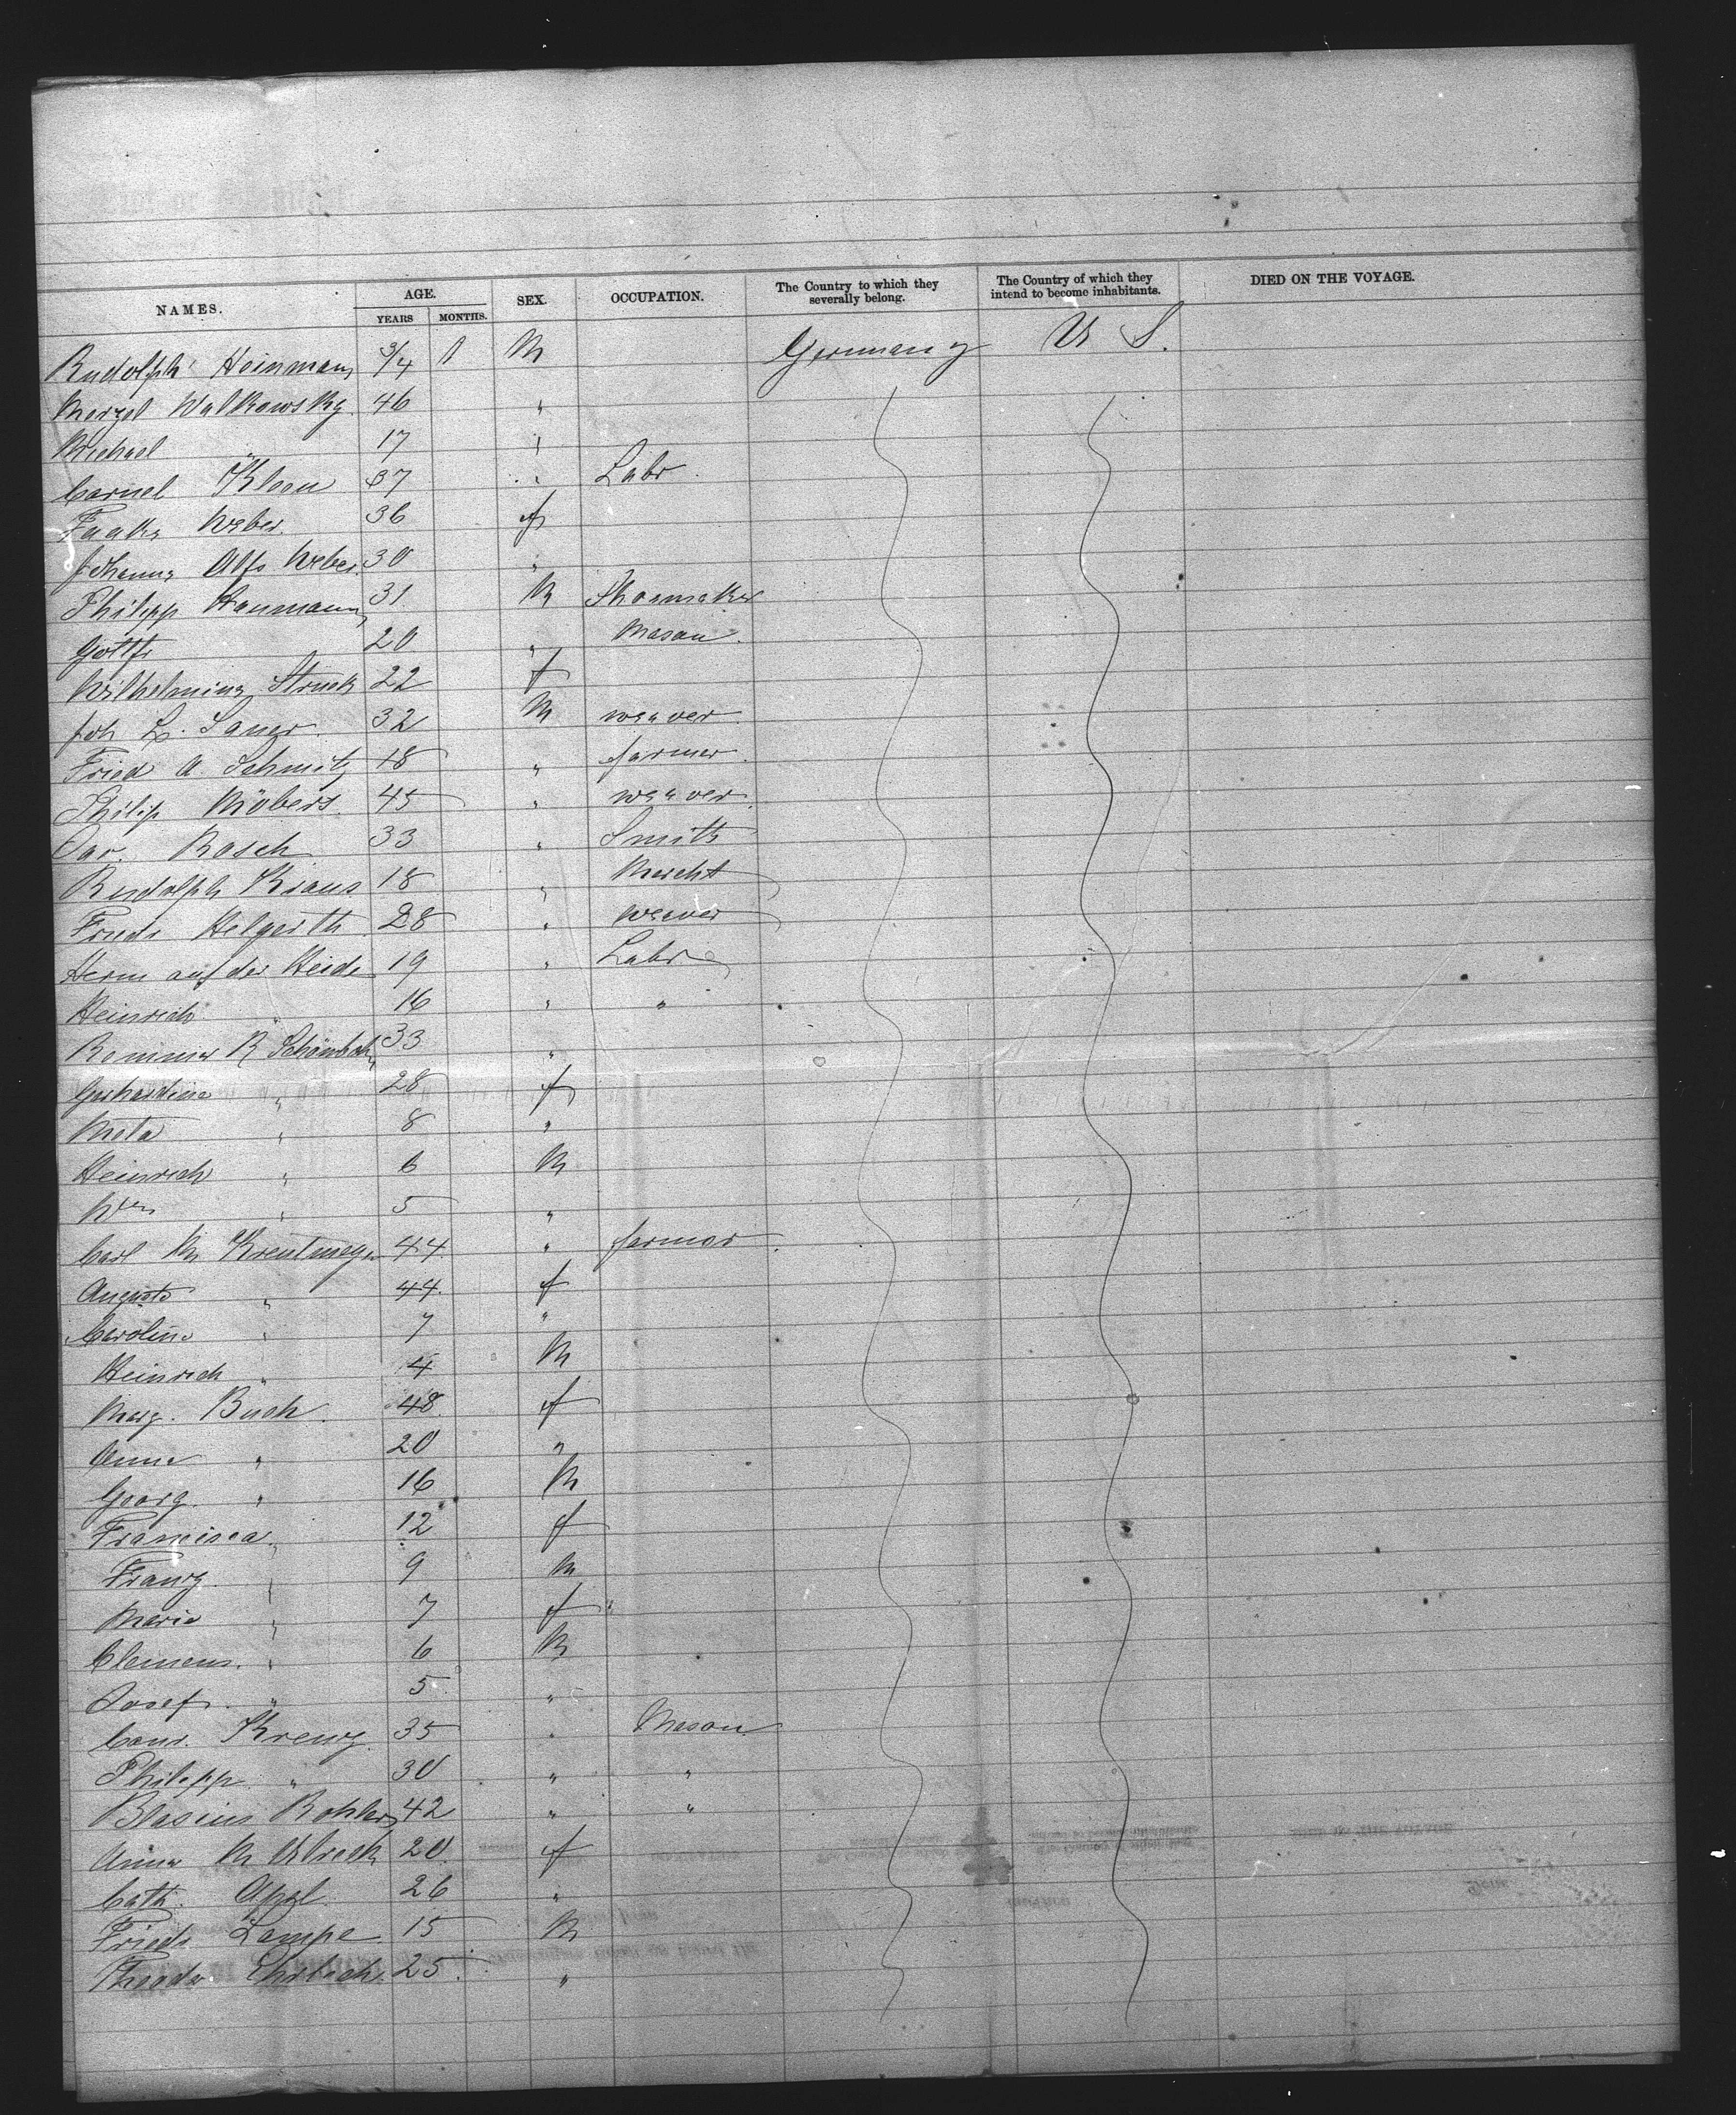 NAMES. AGE. YEARS MONTHS. SEX. OCCUPATION. The Country to which they severally belong. The Country of which they intend to become inhabitants. DIED ON THE VOYAGE.
Rudolph Heinmann 3/4 M Germany U S.
Walkowsky 46 "
Michael " 17 "
Kleen 37 " Labr.
Weber. 36 f
Johanna Weber. 30 "
Philipp Haumann 31 M Shoemaker
Gottfr 20 " Mason.
Wilhelmina Struck 22 f
Joh L. 32 M weaver
Fried A. Schmitz 48 " farmer.
Philip Möbers 45 " weaver.
Rasch 33 " Smith
Rudolph Kraus 18 " Marcht
Friedr Helgerth 28 " weaver
Herm auf der Heide 19 " Labr
Heinrich " 16 " "
R 33 "
Gerhardine " 28 f
Meta " 8 "
Heinrich " 6 M
Wm " 5 "
Carl M Kreulmeyer 44 " farmer.
Auguste " 44. f
Caroline " 7 "
Heinrich " 4 M
Marg. Buch. 48 f
Anna " 20 "
Georg. " 16 M
Francisca " 12 f
Franz. " 9 M
Marie " 7 f
Clemens. " 6 M
Josef. " 5. "
Conr. Kreuz. 35 " Mason
Philipp " 30 " "
Blasius Rohlers 42 " "
Anna M Ulrich 20. f
Cath. Apzl. 26 "
Friedr Lampe 15 M
Theodr. Ehrlich. 25. "